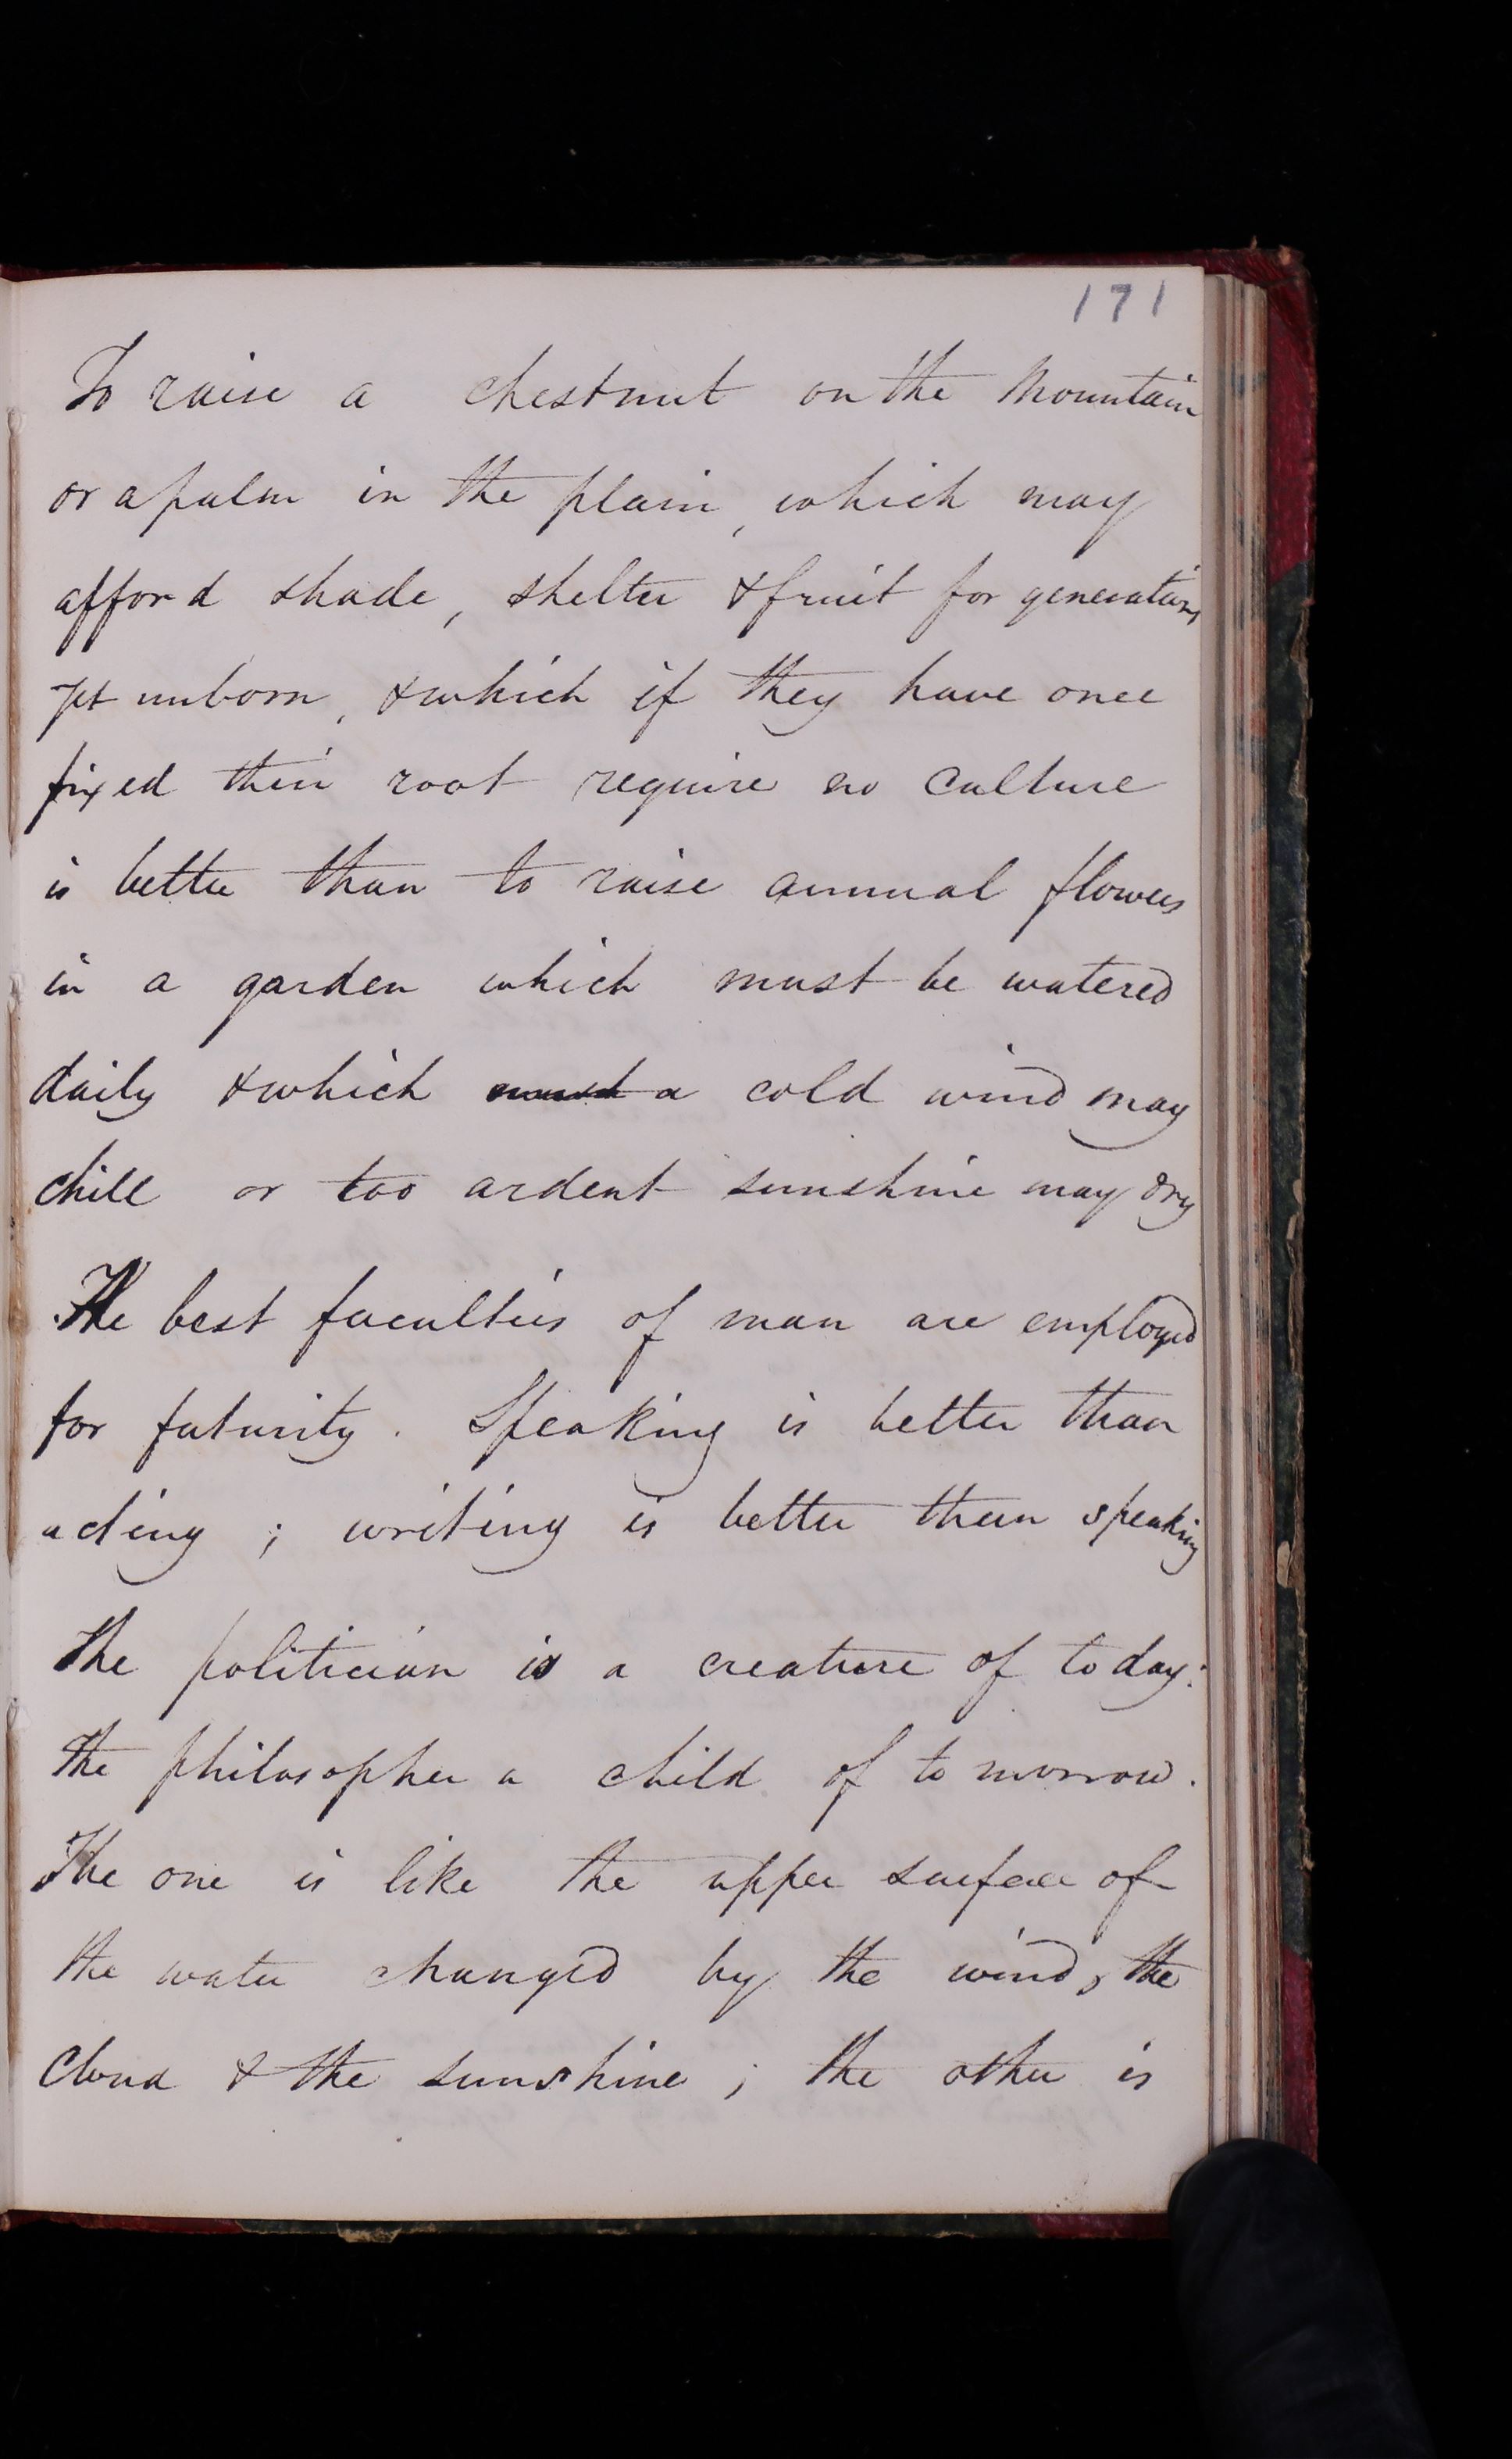 171
To raise a chestnut on the Mountain
or a palm in the plain, which may
afford shade, shelter & fruit for generations
yet unborn, & which if they have once
fixed their root require no culture
is better than to raise annual flowers
in a garden which must be watered
daily & which must a cold wind may
chill or too ardent sunshine may dry
The best faculties of man are employed
for futurity. Speaking is better than
acting; writing is better than speaking
The politician is a creature of to day:
the philosopher a child of to morrow.
The one is like the upper surface of
the water changed by the wind, the
cloud & the sunshine; the other is